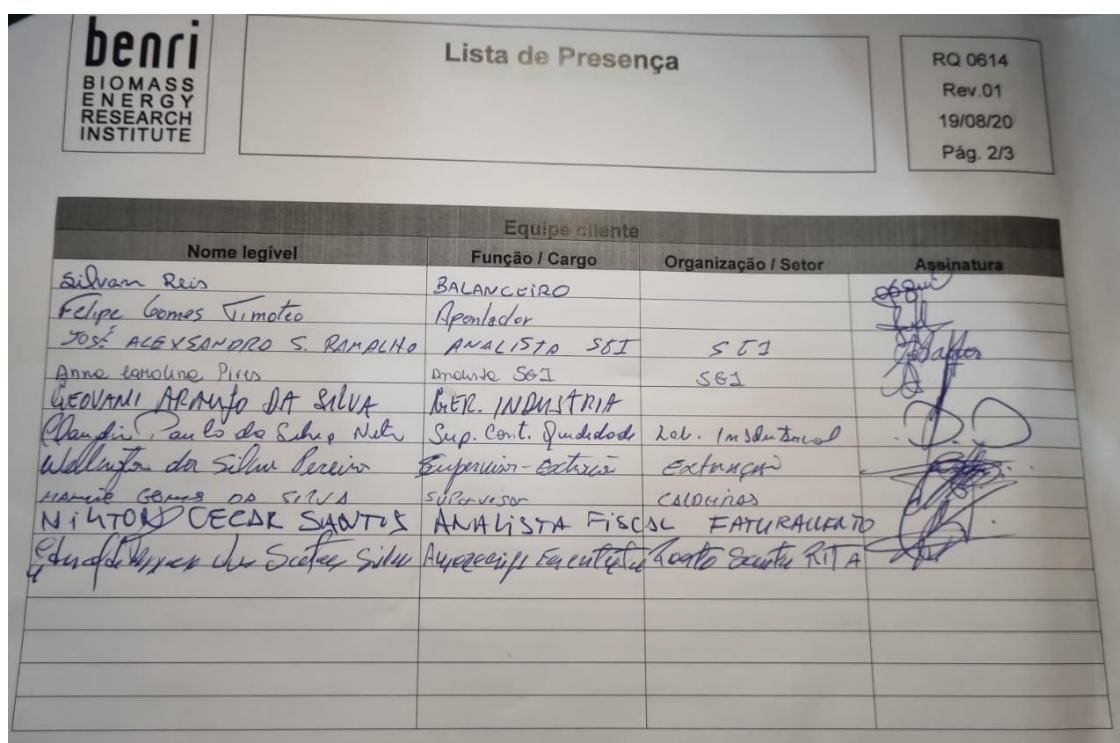 benri
BIOMASS
ENERGY
RESEARCH
INSTITUTE
Lista de Presença
RQ 0614
Rev.01
19/08/20
Pág. 2/3
Equipe cliente
Nome legível Função / Cargo Organização / Setor Assinatura
Silvan Reis BALANCEIRO
Felipe Gomes Timoteo Apontador
JOSÉ ALEXSANDRO S. RAMALHO ANALISTA SGI SGI
Anna Carolina Pires Analista SGI SGI
GEOVANI ARAUJO DA SILVA GER. INDUSTRIA
Paulo da Silva Neto Sup. Cont. Qualidade Lab. Industrial
Wellington da Silva Pereira Supervisor-Extração Extração
GOMES DA SILVA Supervisor CALDEIRAS
NILTON CECAR SANTOS ANALISTA FISCAL FATURAMENTO
Silva Santa RITA